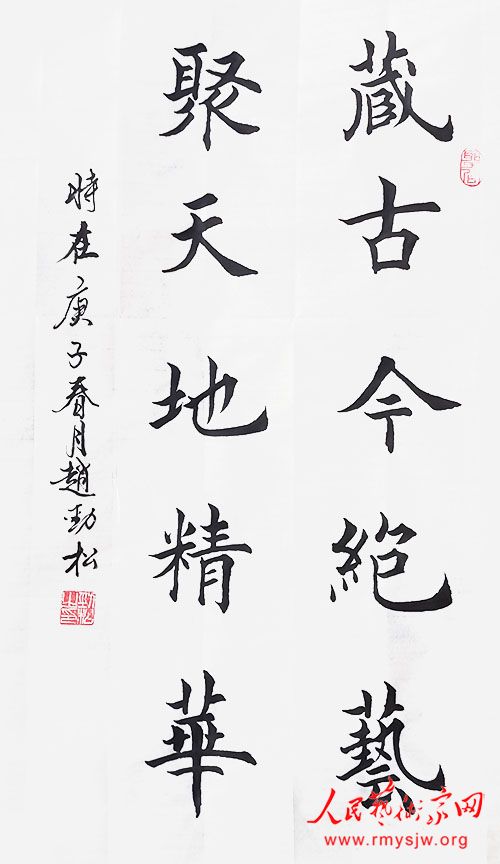 藏古今絕藝
聚天地精華
時在庚子春月趙勁松
人民艺术家网
www.rmysjw.org